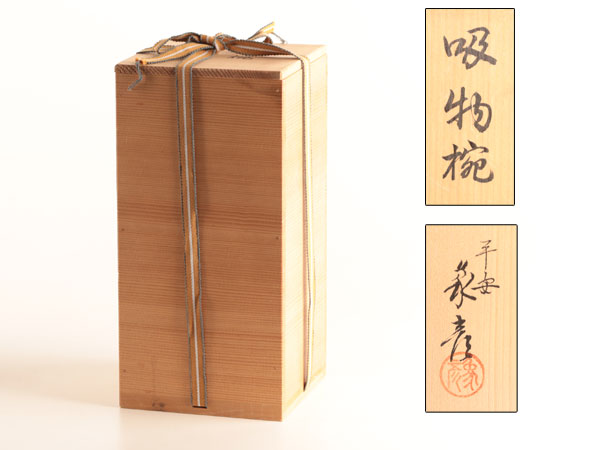 吸物椀
平安
象彦